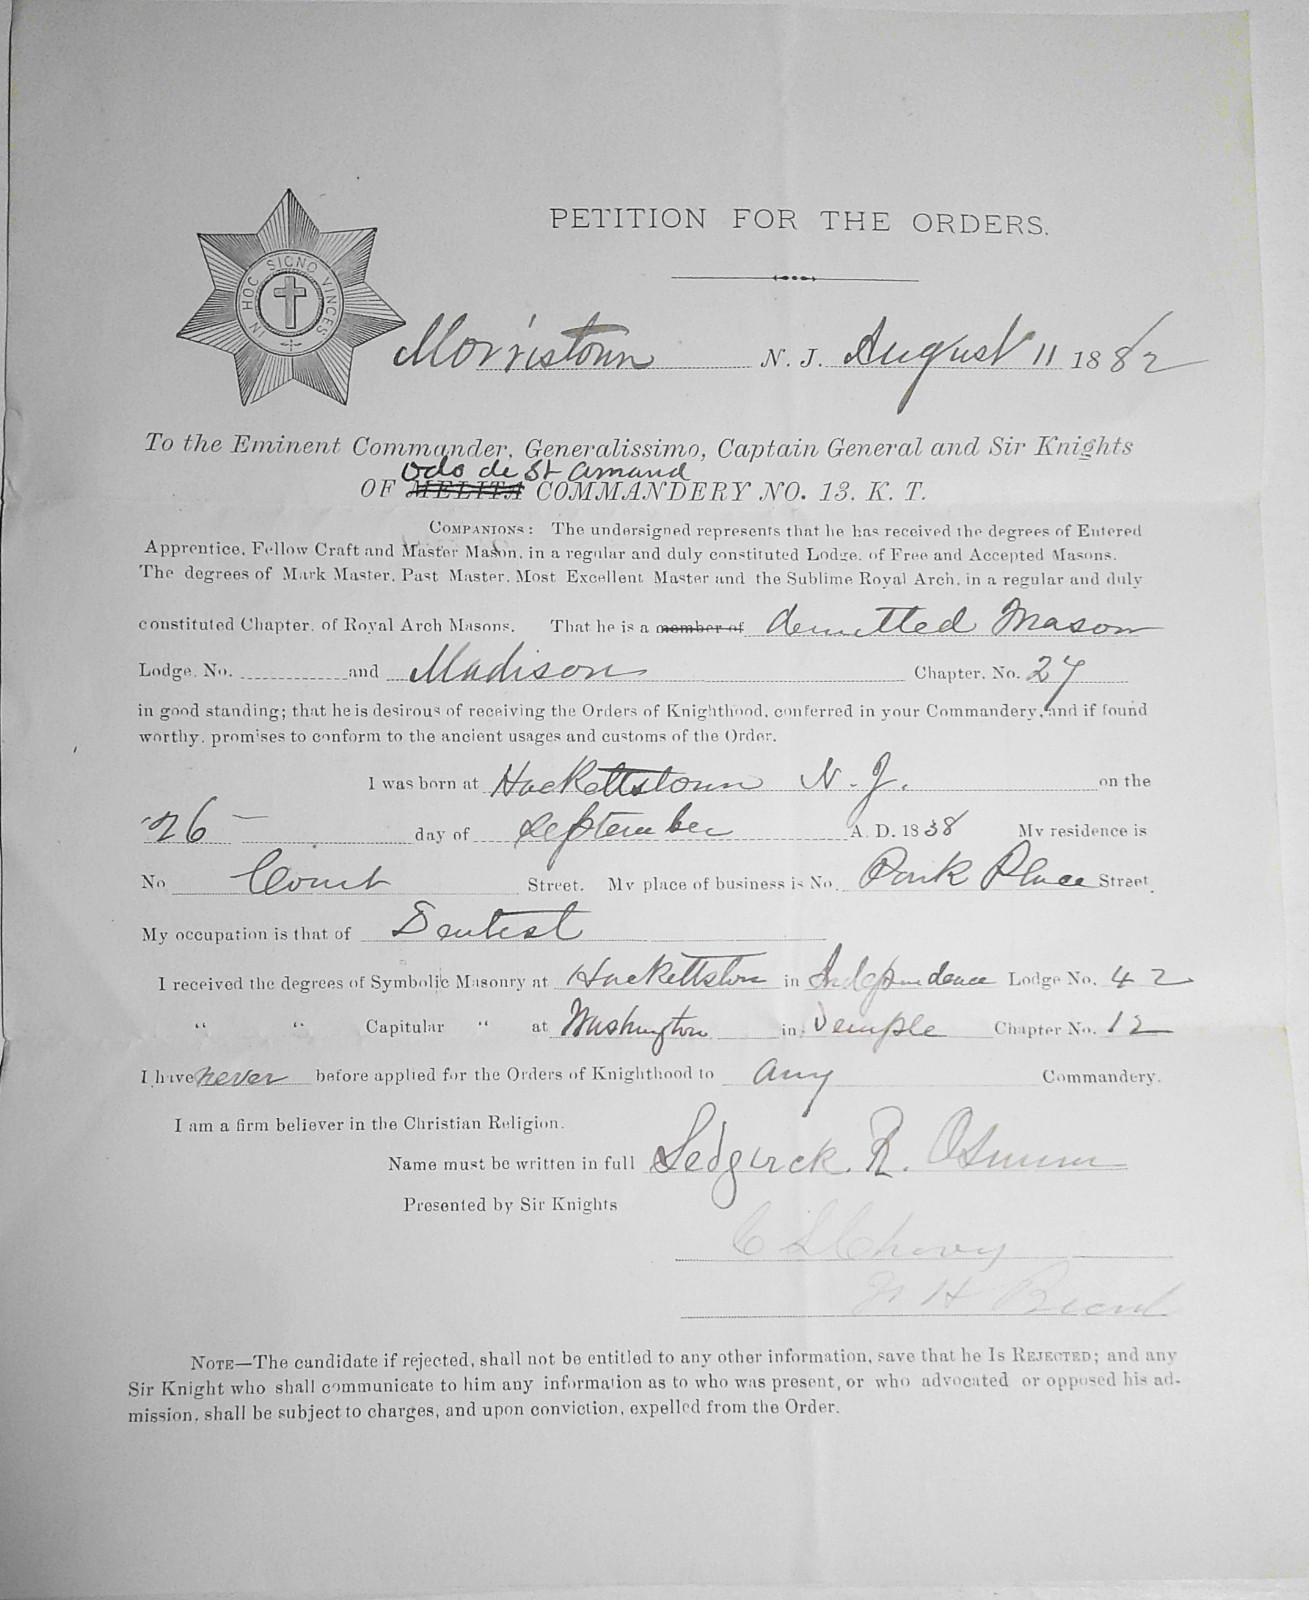 PETITION FOR THE ORDERS.
IN HOC SIGNO VINCES
Morristown N. J. August 11 1882
To the Eminent Commander, Generalissimo, Captain General and Sir Knights
Odo de St Amand
OF MELITA COMMANDERY NO. 13. K. T.
COMPANIONS: The undersigned represents that he has received the degrees of Entered
Apprentice, Fellow Craft and Master Mason, in a regular and duly constituted Lodge, of Free and Accepted Masons.
The degrees of Mark Master, Past Master, Most Excellent Master and the Sublime Royal Arch, in a regular and duly
constituted Chapter, of Royal Arch Masons. That he is a member of demitted Mason
Lodge, No. and Madison Chapter, No. 27
in good standing; that he is desirous of receiving the Orders of Knighthood, conferred in your Commandery, and if found
worthy, promises to conform to the ancient usages and customs of the Order.
I was born at Hackettstown N. J. on the
26 day of September A. D. 1838 My residence is
No Court Street. My place of business is No. Park Place Street.
My occupation is that of Dentist
I received the degrees of Symbolic Masonry at Hackettstown in Independence Lodge No. 42
" " Capitular " at Washington in Temple Chapter No. 12
I have never before applied for the Orders of Knighthood to any Commandery.
I am a firm believer in the Christian Religion.
Name must be written in full Sedgwick R. Osmun
Presented by Sir Knights
NOTE—The candidate if rejected, shall not be entitled to any other information, save that he Is REJECTED; and any
Sir Knight who shall communicate to him any information as to who was present, or who advocated or opposed his ad-
mission, shall be subject to charges, and upon conviction, expelled from the Order.